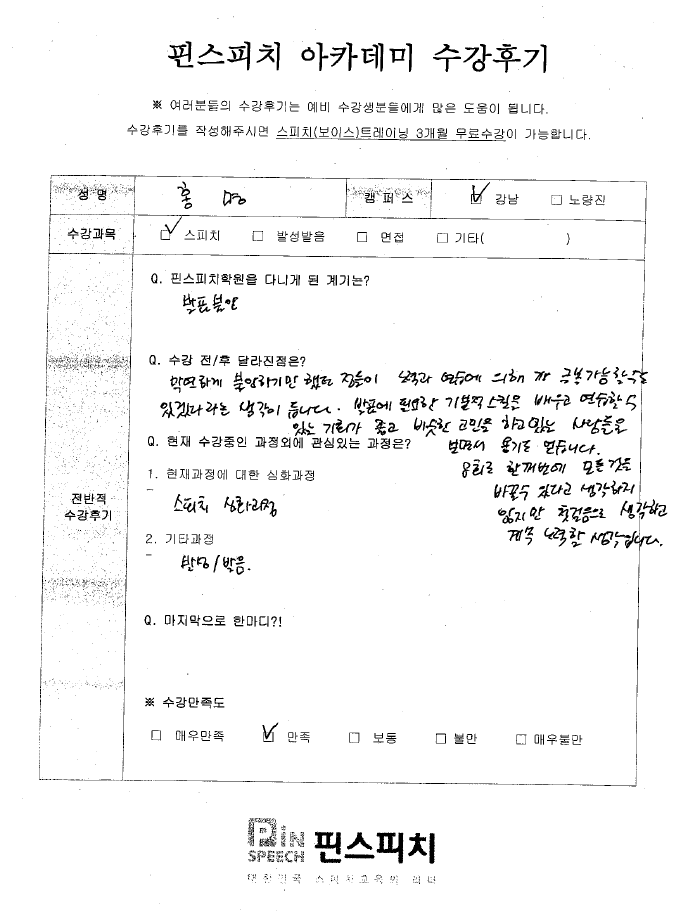 핀스피치 아카데미 수강후기
※ 여러분들의 수강후기는 예비 수강생분들에게 많은 도움이 됩니다.
수강후기를 작성해주시면 스피치(보이스)트레이닝 3개월 무료수강이 가능합니다.
성 명 홍 캠 퍼 스 ☑ 강남 □ 노량진
수강과목 ☑ 스피치 □ 발성발음 □ 면접 □ 기타( )
전반적
수강후기
Q. 핀스피치학원을 다니게 된 계기는?
발표불안
Q. 수강 전/후 달라진점은?
막연하게 불안하기만 했던 점들이 노력과 연습에 의해 극복가능할수도
있겠다라는 생각이 듭니다. 발표에 필요한 기본적 스킬을 배우고 연습할 수
있는 기회가 좋고 비슷한 고민을 하고 있는 사람들을
보면서 용기도 얻습니다.
8회로 한꺼번에 모든것을
바꿀수 있다고 생각하지
않지만 첫걸음으로 생각하고
계속 노력할 생각입니다.
Q. 현재 수강중인 과정외에 관심있는 과정은?
1. 현재과정에 대한 심화과정
- 스피치 심화과정
2. 기타과정
- 발성/발음.
Q. 마지막으로 한마디?!
※ 수강만족도
□ 매우만족 ☑ 만족 □ 보통 □ 불만 □ 매우불만
PiN
SPEECH 핀스피치
대한민국 스피치교육의 리더